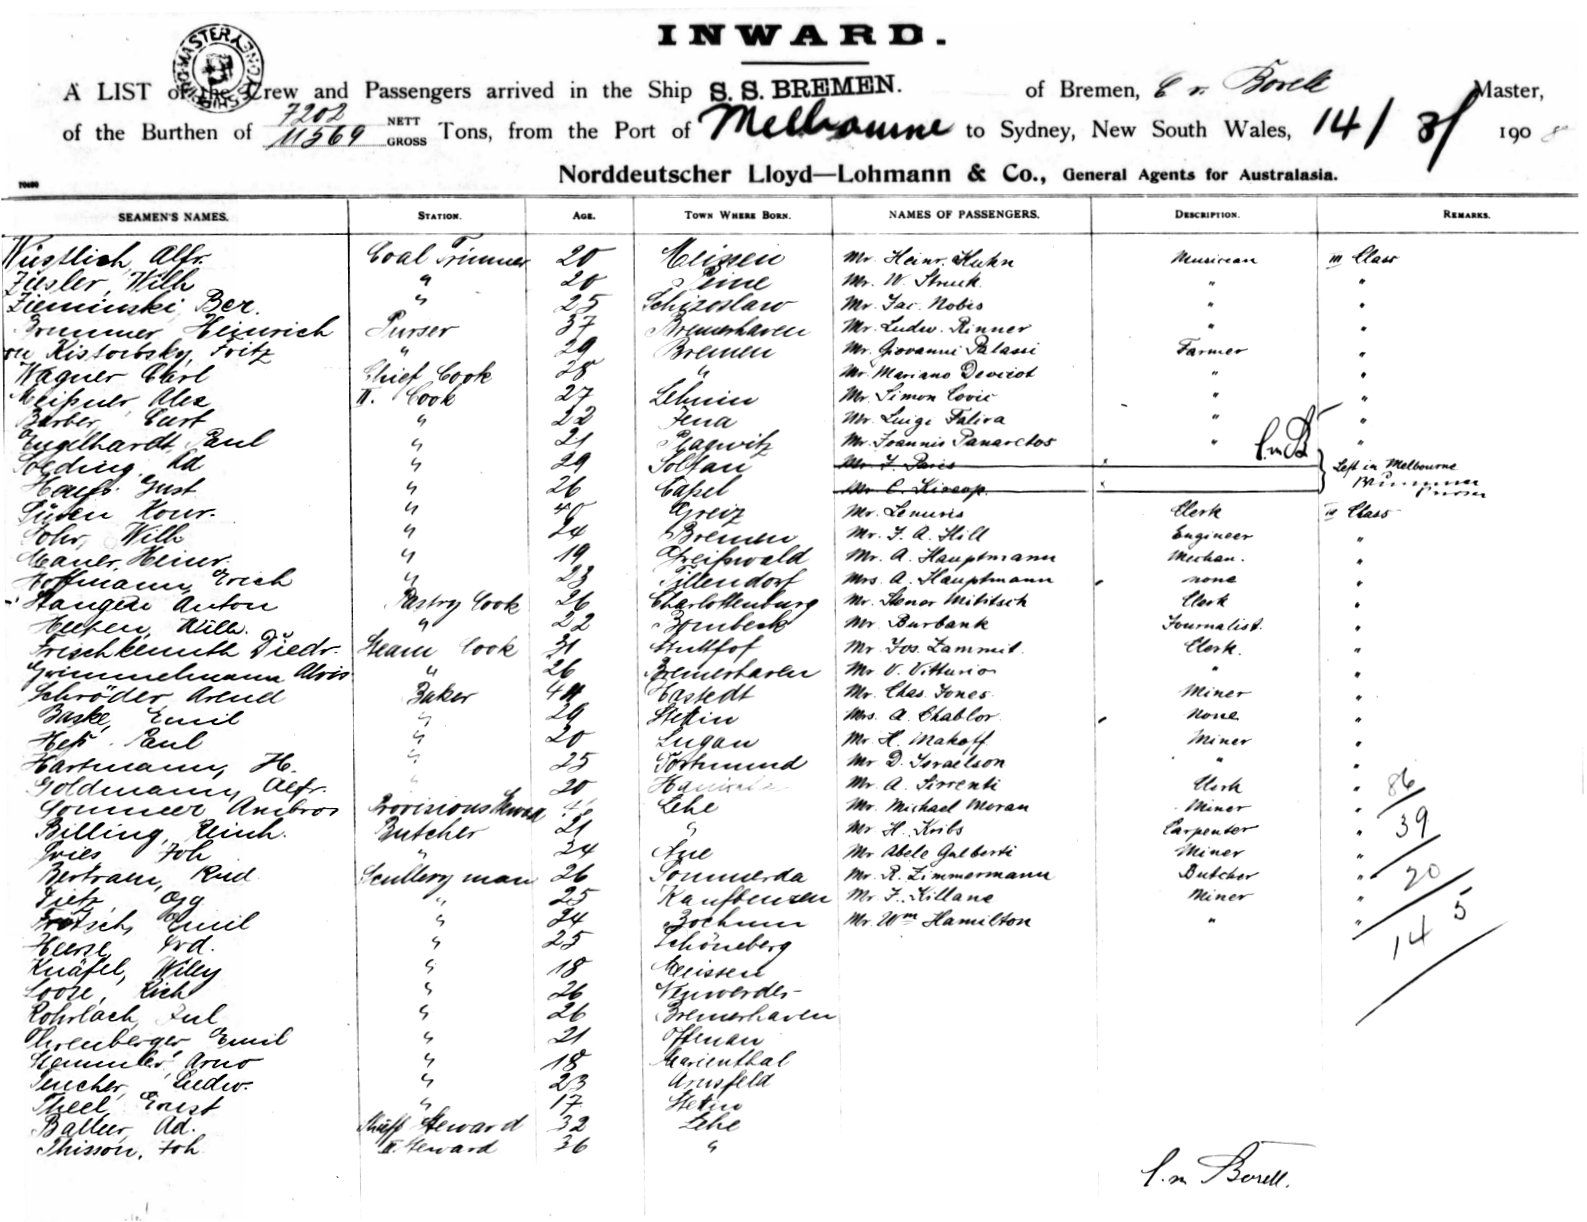 INWARD.
A LIST of the Crew and Passengers arrived in the Ship S. S. BREMEN. of Bremen, C v. Borell Master,
of the Burthen of 7202 NETT 11569 GROSS Tons, from the Port of Melbourne to Sydney, New South Wales, 14/3/ 1908
Norddeutscher Lloyd—Lohmann & Co., General Agents for Australasia.
SEAMEN'S NAMES. STATION. AGE. TOWN WHERE BORN. NAMES OF PASSENGERS. DESCRIPTION. REMARKS.
Wüstlich Alfr. Coal Trimmer 20 Meissen Mr. Heinr. Kuhn Musician III Class
Ziesler, Wilh " 20 Peine Mr. W. Struck " "
Zieminski, Ber. " 25 Mr. Jac. Nobis " "
Brummer, Heinrich Purser 37 Bremerhaven Mr. Ludw. Rinner " "
Fritz " 29 Bremen Mr. Giovanni Palassi Farmer "
Wagner Carl Chief Cook 28 " Mr. Mariano " "
Meißner, Alex II. Cook 27 Lehnin Mr. Simon Covic " "
Barber, Curt " 22 Jena Mr. Luigi Faliva " "
Engelhardt, Paul " 21 Plagwitz Mr. Joannis Panaretos " "
Soeding, Ad " 29 Soltau Mr. F. Paris Left in Melbourne
Gust " 26 Caßel Mr. C. Brummer Purser
Konr. " Greiz Mr. Clerk III Class
Sohr, Wilh " 24 Bremen Mr. F. A. Hill Engineer "
Heinr. " 19 Greifswald Mr. A. Hauptmann Mechan. "
Hoffmann, Erich " 23 Tillendorf Mrs. A. Hauptmann none "
Anton Pastry Cook 26 Charlottenburg Mr. Clerk "
Wilh. " 22 Mr. Burbank Journalist. "
Diedr. Steam Cook 31 Mr. Jos. Zammit Clerk. "
Grimmelmann Alois " 26 Bremerhaven Mr. V. Vitturio " "
Schröder, Arend Baker Hastedt Mr. Chas. Jones. Miner "
Baske, Emil " 29 Stettin Mrs. A. Chablor none "
Heß, Paul " 20 Lugau Mr. H. Makoff Miner "
Hartmann, H. " 25 Dortmund Mr. D. Israelson " "
Goldmann, Alfr. " 20 Mr. A. Sirrenti Clerk " 86
Sommer Ambros Provisions Lehe Mr. Michael Moran Miner "
Billing, Reinh. Butcher 21 " Mr. H. Kribs Carpenter " 39
Gries Joh " 24 Aue Mr. Abele Gulberti Miner "
Bertram, Rud Scullery man 26 Sommerda Mr. R. Zimmermann Butcher " 20
Dietz, " 25 Kaufbeuren Mr. F. Killane Miner "
Fritsch, Emil " 24 Bochum Mr. Wm Hamilton " "
145
Heerse, Frd. " 25 Schöneberg
Knäfel, Willy " 18 Meissen
Loose, Rich " 26
Rohrlach, Jul " 26 Bremerhaven
Ohrenberger Emil " 21 Offenau
Arno " 18 Marienthal
Ludw. " 23 Arnsfeld
Theel, Ernst " 17 Stettin
Ad. Steward 32 Lehe
Joh. II. Steward 36 "
C. v. Borell.